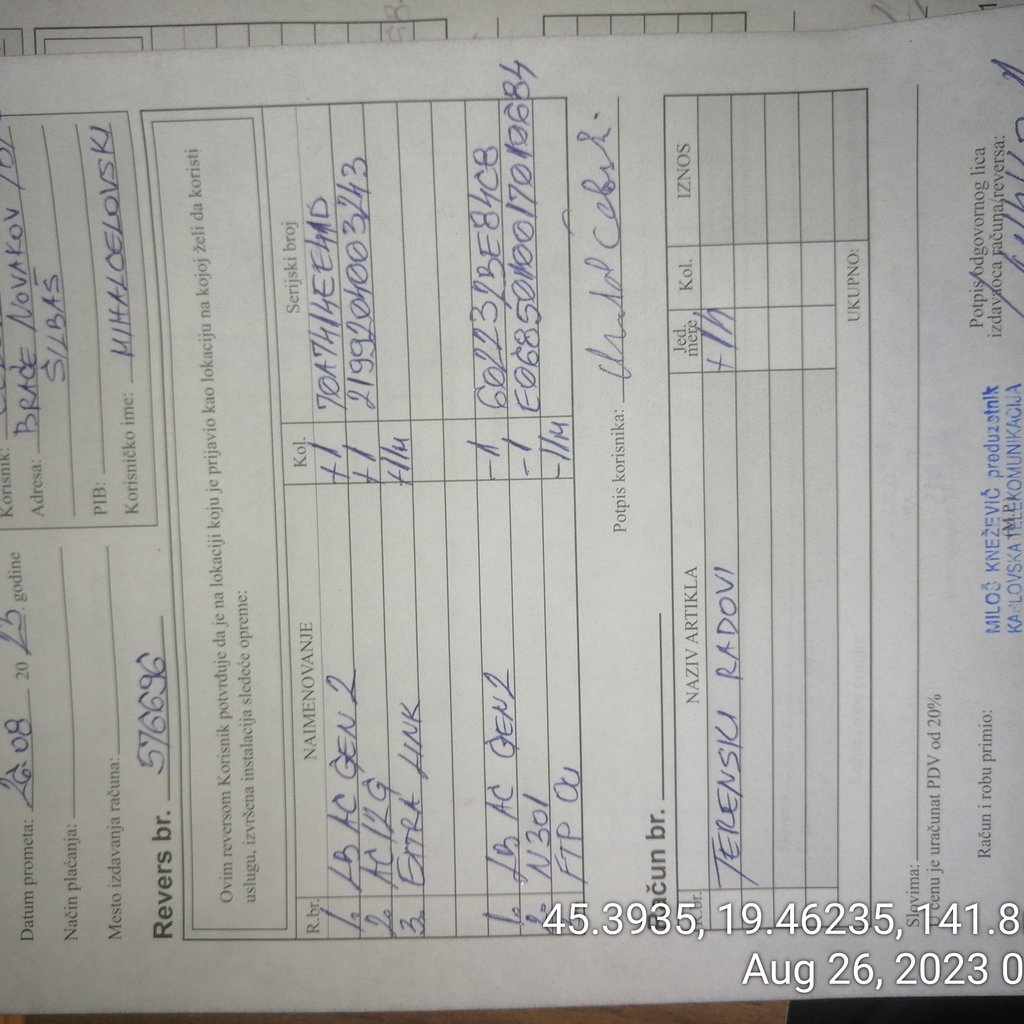 Datum prometa: 26.08 2023. godine
Način plaćanja:
Mesto izdavanja računa:
Korisnik:
Adresa: BRAĆE NOVAKOV
ŠILBAŠ
PIB:
Korisničko ime: MIHALOELOVSKI
Revers br. 576696
Ovim reversom Korisnik potvrđuje da je na lokaciji koju je prijavio kao lokaciju na kojoj želi da koristi
uslugu, izvršena instalacija sledeće opreme:
R.br. NAIMENOVANJE Kol. Serijski broj
1. LB AC GEN 2 +1 70A7414EE41D
2. AC12G +1 2199201003243
3. EXTRA LINK +1M
1. LB AC GEN2 -1 602232BE84CB
2. N301 -1 E0685010017010684
FTP CU -11M
Potpis korisnika:
Račun br.
R.br. NAZIV ARTIKLA Jed. mere Kol. IZNOS
TERENSKI RADOVI +1h
UKUPNO:
Slovima:
U cenu je uračunat PDV od 20%
Račun i robu primio:
M.P.
MILOŠ KNEŽEVIĆ preduzetnik
KARLOVSKA TELEKOMUNIKACIJA
Potpis odgovornog lica
izdavaoca računa/reversa:
45.3935, 19.46235, 141.8
Aug 26, 2023 0